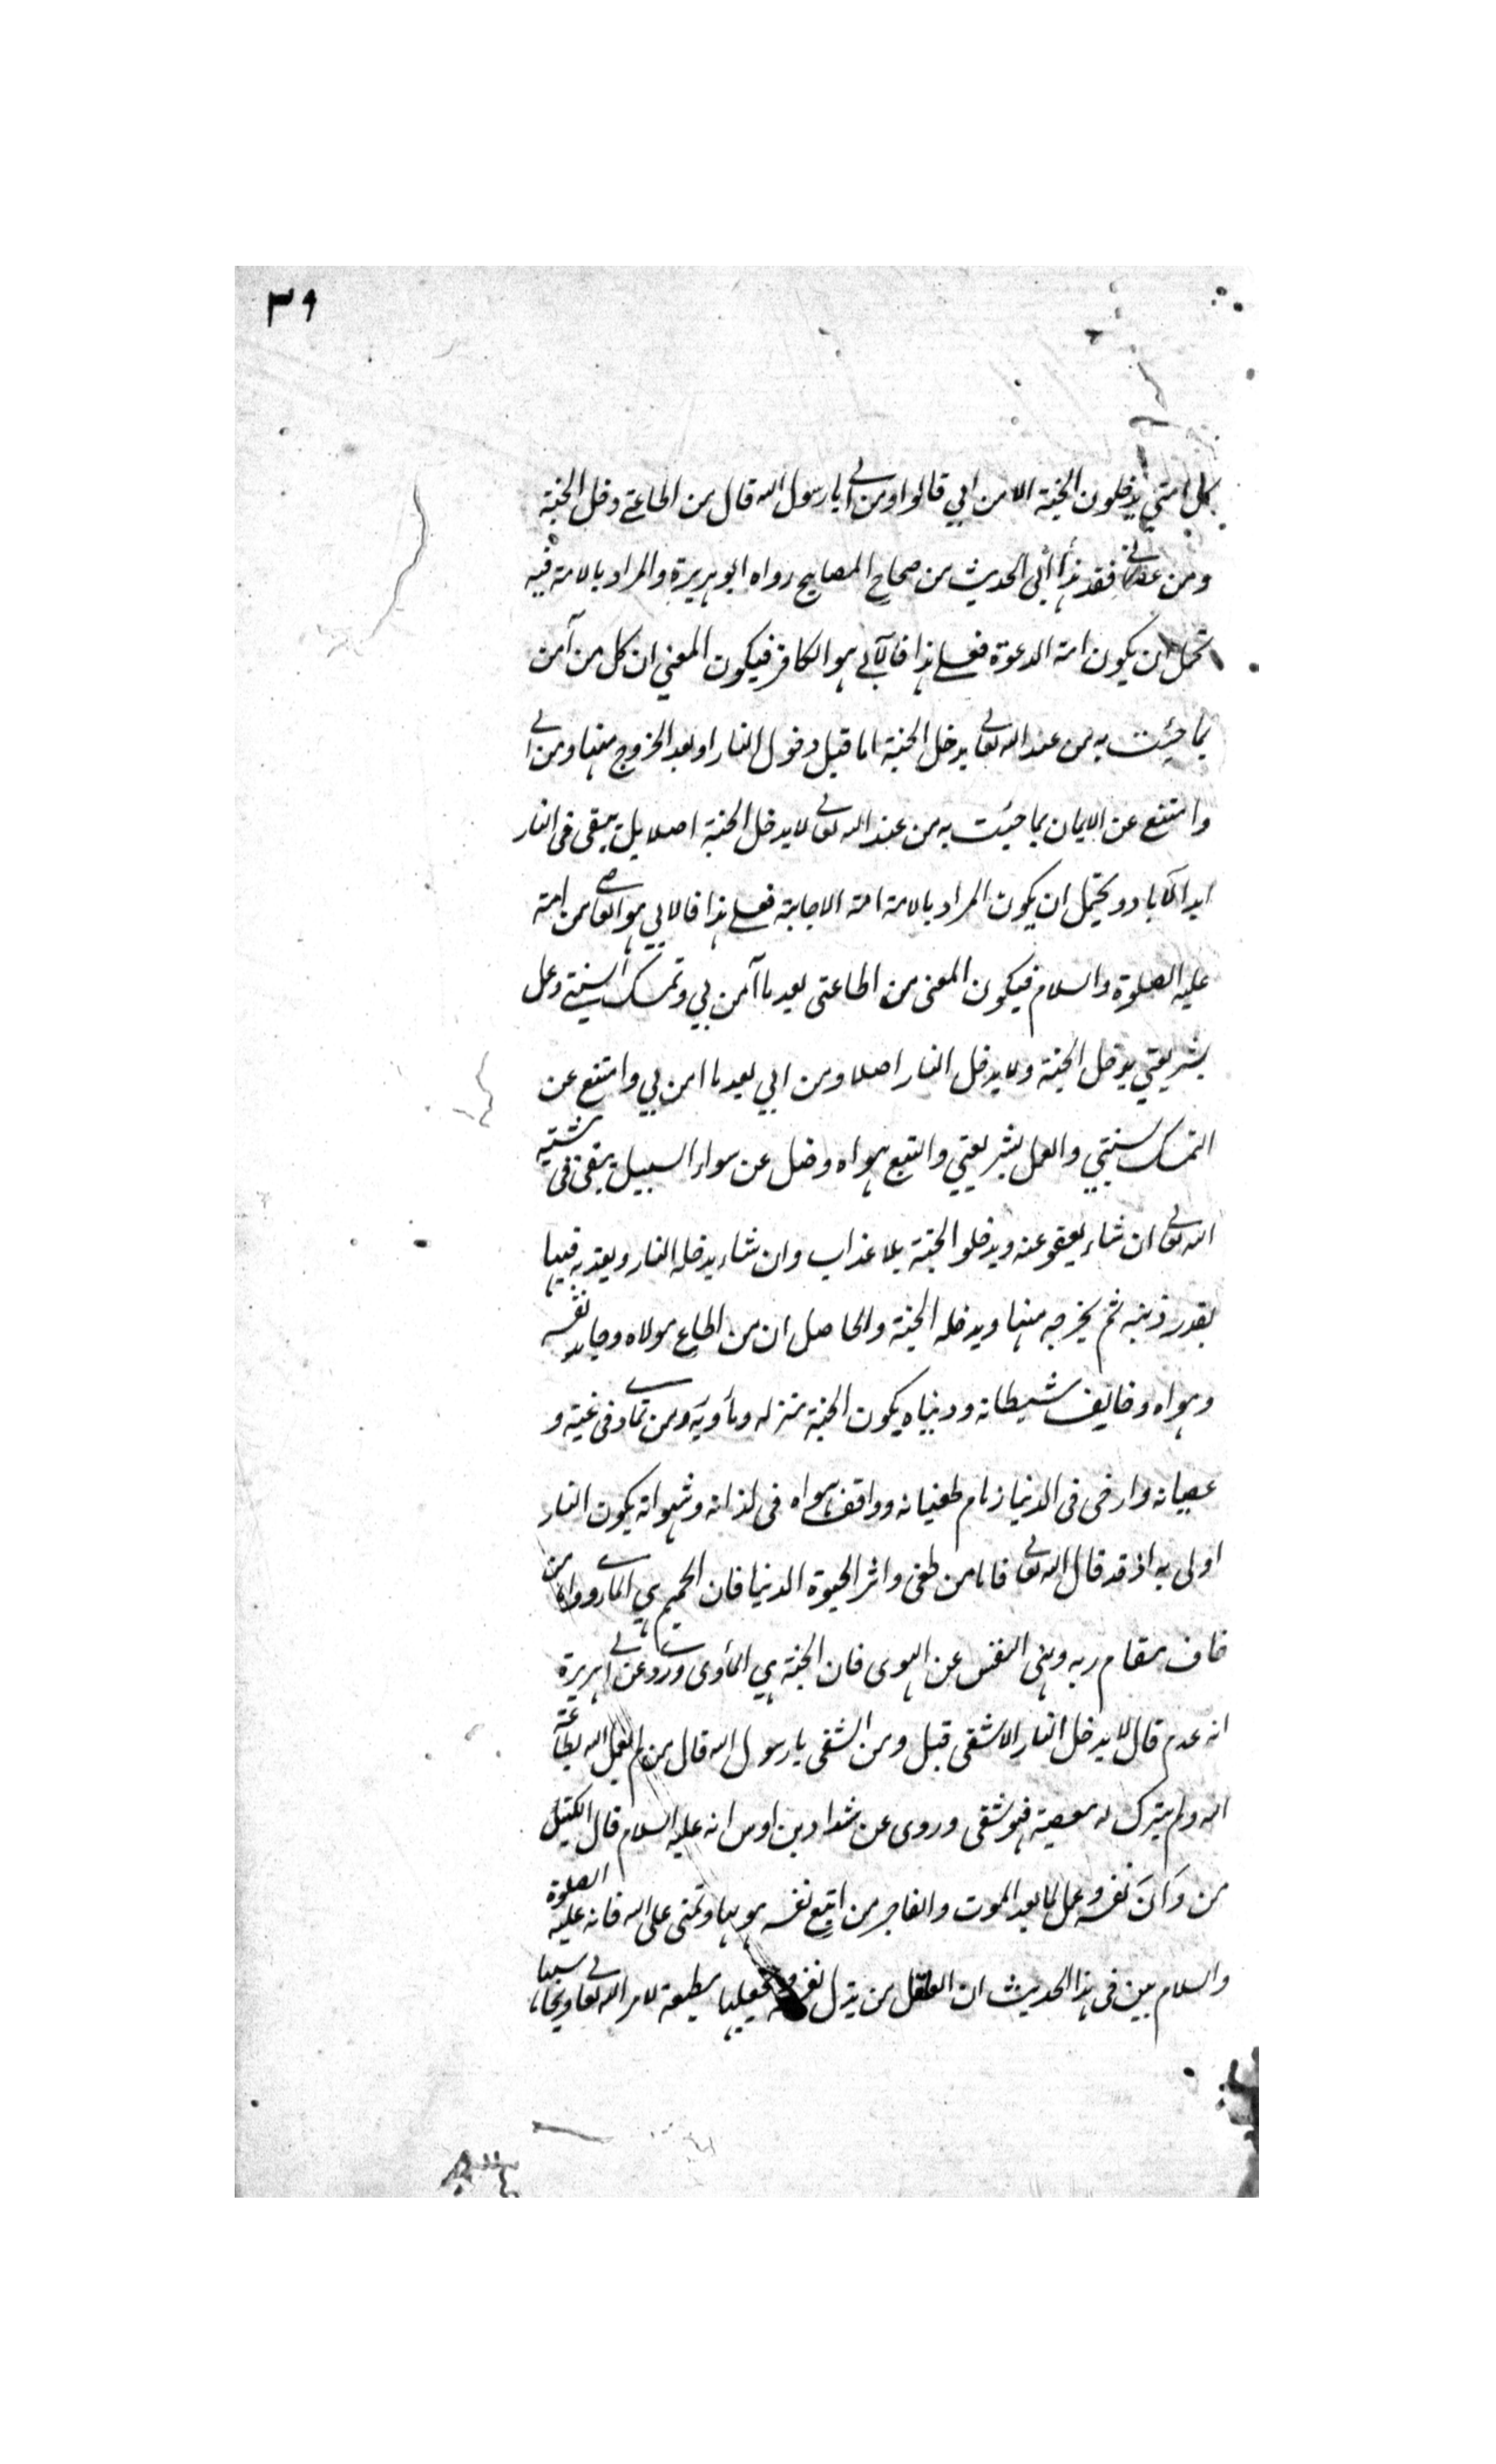 ٣٩
كل امتي يدخلون الجنة الا من ابي قالوا ومن ابى يا رسول الله قال من اطاعني دخل الجنة
ومن عصاني فقد ابى هذا الحديث من صحاح المصابيح رواه ابو هريرة والمراد بالامة فيه
يحتمل ان يكون امة الدعوة فعلى هذا فالآبي هو الكافر فيكون المعني ان كل من آمن
بما جئت به من عند الله تعالى يدخل الجنة اما قبل دخول النار او بعد الخروج منها ومن ابى
وامتنع عن الايمان بما جئت به من عند الله تعالى لا يدخل الجنة اصلا بل يبقى فى النار
ابد الآباد ويحتمل ان يكون المراد بالامة امة الاجابة فعلى هذا فالابي هو العاصي من امته
عليه الصلوة والسلام فيكون المعنى من اطاعتى بعد ما آمن بي وتمسك بسنتي وعمل
بشريعتي يدخل الجنة ولا يدخل النار اصلا ومن ابي بعد ما امن بي وامتنع عن
التمسك بسنتي والعمل بشريعتي واتبع هواه وضل عن سواء السبيل يبقى فى مشية
الله تعالى ان شاء يعفو عنه ويدخلو الجنة بلا عذاب وان شاء يدخله النار ويعذبه فيها
بقدر ذنبه ثم يخرجه منها ويدخله الجنة والحاصل ان من اطاع مولاه وجاهد نفسه
وهواه وخالف شيطانه ودنياه يكون الجنة منزله ومأويه ومن تمادى فى غيه و
عصيانه وارخى فى الدنيا زمام طغيانه ووافق هواه فى لذاته وشهواته يكون النار
اولى به اذ قد قال الله تعالى فاما من طغى واثر الحيوة الدنيا فان الجحيم هي المأوى واما من
خاف مقام ربه ونهى النفس عن الهوى فان الجنة هي المأوى وروى عن ابى هريرة
انه عم قال لا يدخل النار الا شقى قيل ومن الشقى يا رسول الله قال من لم يعمل لله بطاعة
الله ولم يترك له معصية فهو شقى وروى عن شداد بن اوس انه عليه السلام قال الكيس
من دَانَ نفسه وعمل لما بعد الموت والفاجر من اتبع نفسه هويها وتمنى على الله فانه عليه الصلوة
والسلام بين فى هذا الحديث ان العاقل من يذل نفسه ويجعلها مطيعة لامر الله تعالى ويحاسبها